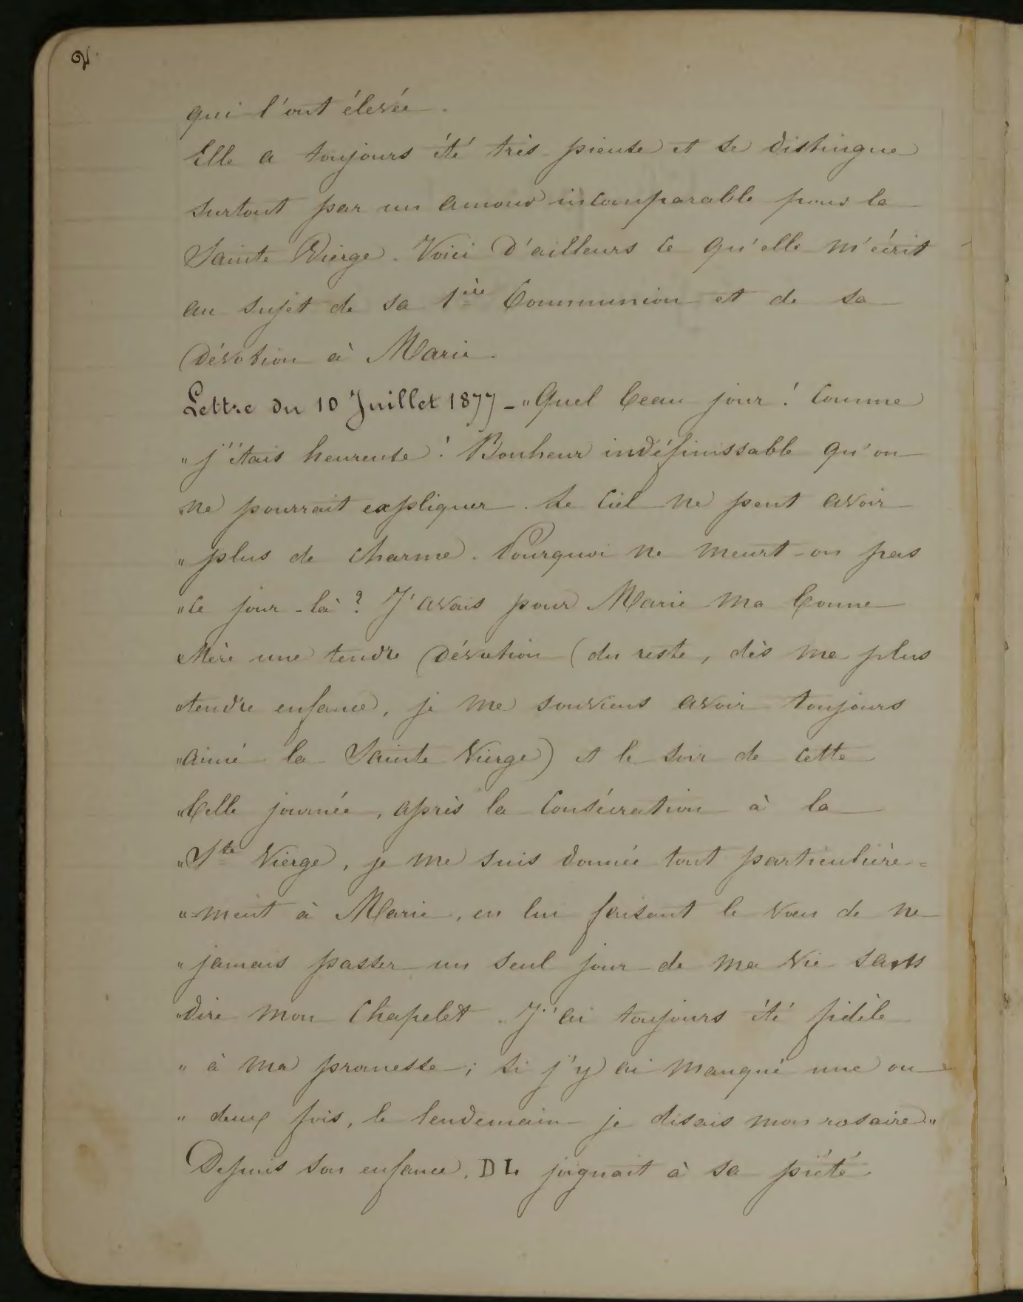 2.
qui l'ont élevée.
Elle a toujours été très pieuse et se distingue
surtout par un amour incomparable pour la
Sainte Vierge. Voici d'ailleurs ce qu'elle m'écrit
au sujet de sa 1ère Communion et de sa
dévotion à Marie.
Lettre du 10 Juillet 1877 - "Quel beau jour! Comme
" j'étais heureuse! Bonheur indéfinissable qu'on
ne pourrait expliquer. Le Ciel ne peut avoir
" plus de charme. Pourquoi ne meurt-on pas
" ce jour-là? J'avais pour Marie ma bonne
Mère une tendre dévotion (du reste, dès ma plus
"tendre enfance, je me souviens avoir toujours
"aimé la Sainte Vierge) et le soir de cette
"belle journée, après la Consécration à la
"Ste Vierge, je me suis donnée tout particulière=
"=ment à Marie, en lui faisant le vœu de ne
" jamais passer un seul jour de ma vie sans
"dire mon Chapelet. J'ai toujours été fidèle
" à ma promesse; si j'y ai manqué une ou
" deux fois, le lendemain je disais mon rosaire"
Depuis son enfance, DL joignait à sa piété